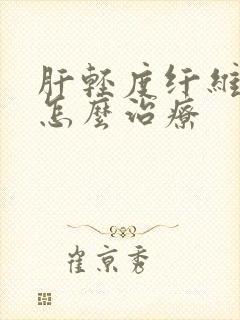 肝轻度纤維
怎麼治療
崔京秀